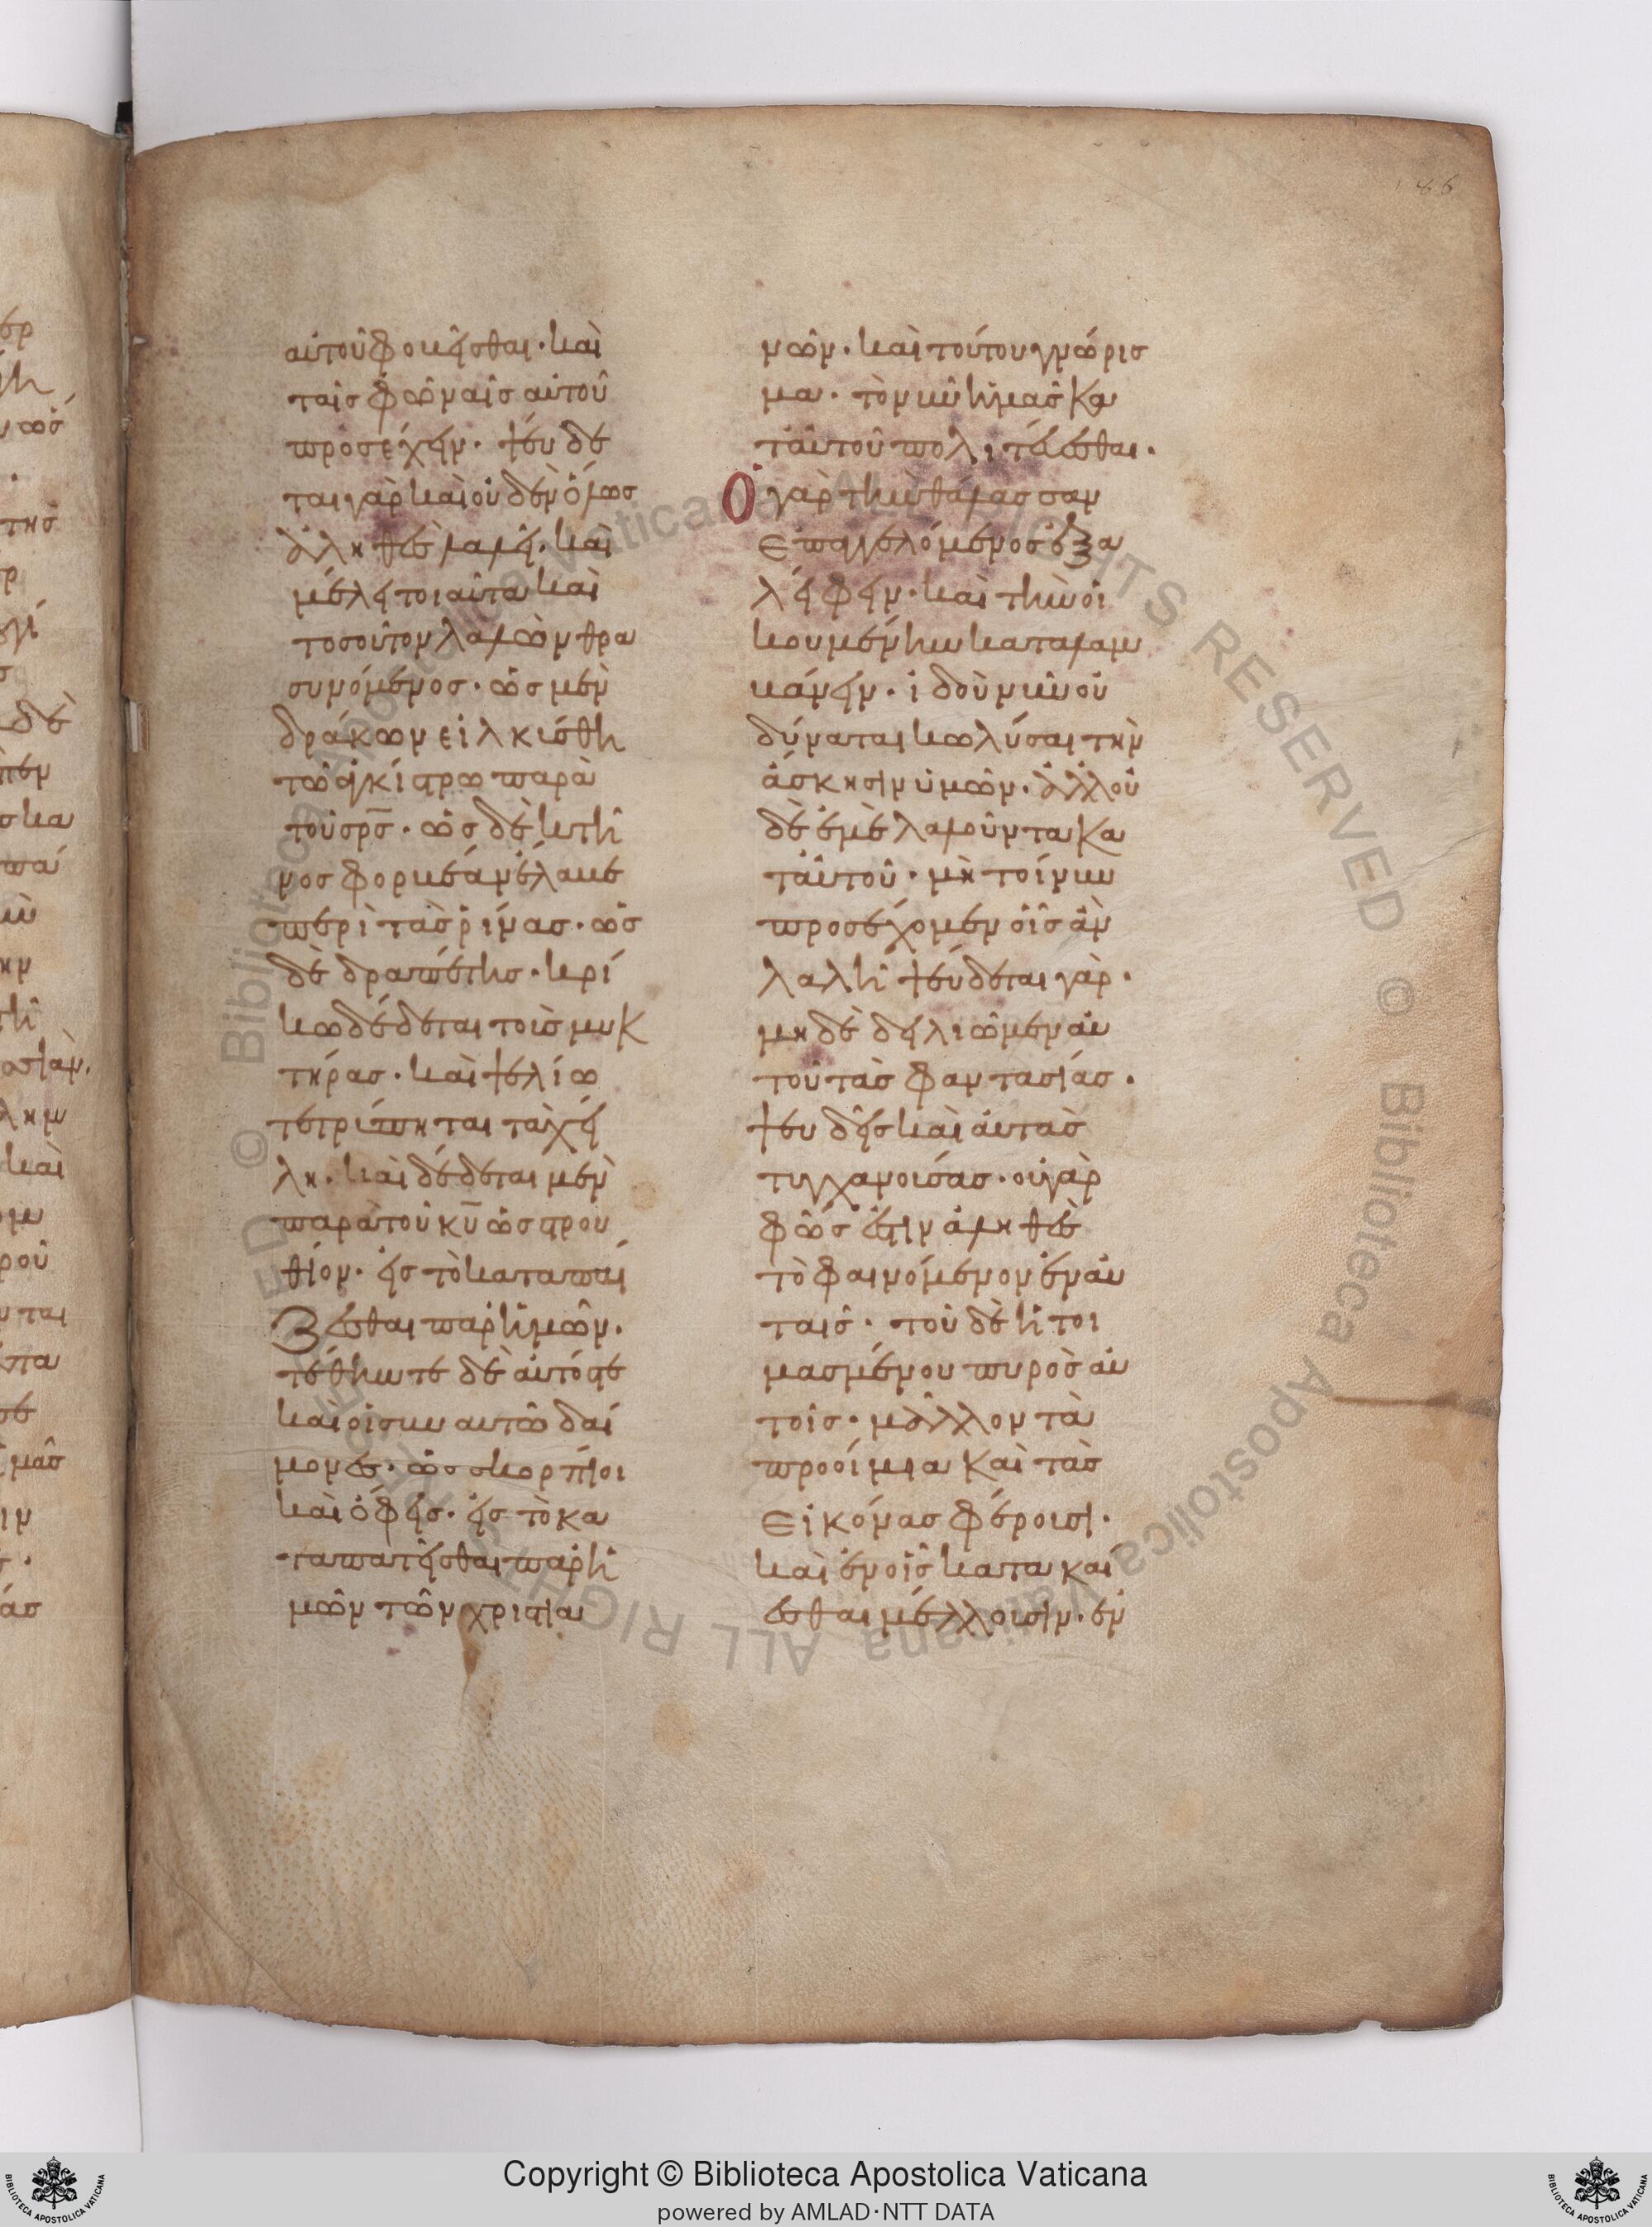 186
αὐτοῦ φοβεῖσθαι· καὶ
ταῖς φωναῖς αὐτοῦ
προσέχειν· ψεύδε
ται γὰρ καὶ οὐδὲν ὅλως
ἀληθὲς λαλεῖ· καὶ
μέλει τοιαῦτα καὶ
τοσοῦτον λαλῶν θρα
συνόμενος· ὡς μὲν
δράκων εἱλκύσθη
τῶ ἀγκίστρω παρὰ
τοῦ σρ̅ς· ὡς δὲ κτῆ
νος φορβέαν ἔλαβε
περὶ τὰς ῥίνας· ὡς
δὲ δραπέτης· κρί
κω δέδεται τοὺς μυκ
τῆρας· καὶ ψελίω
τετρύπηται τὰ χεί
λη· καὶ δέδεται μὲν
παρὰ τοῦ κυ̅ ὡς στρου
θίον· εἰς τὸ καταπαί
ζεσθαι παρ' ἡμῶν·
τέθηνται δὲ αὐτός τε
καὶ οἱ σὺν αυτῶ δαί
μονες· ὡς σκορπίοι
καὶ ὄφεις· εἰς τὸ κα
ταπατεῖσθαι παρ' ἡ
μῶν τῶν χριστια
νῶν· καὶ τούτου γνώρισ
μα· τὸ νῦν ἡμᾶς κα
τ' αὐτοῦ πολιτεύεσθαι·
Ὁ γὰρ τὴν θάλασσαν
ἐπαγγελόμενος ἐξα
λείφειν· καὶ τὴν οἰ
κουμένην καταλαμ
βάνειν· ἰδοὺ νῦν οὐ
δύναται κωλύσαι τὴν
ἄσκησιν ὑμῶν· ἀλλ' οὐ
δὲ ἐμὲ λαλοῦντα κα
τ' αὐτοῦ· μὴ τοίνυν
προσέχομεν οἷς ἂν
λαλῆ ψεύδεται γάρ·
μηδὲ δειλιῶμεν αὐ
τοῦ τὰς φαντασίας·
ψευδεῖς καὶ αὐτὰς
τυγχανούσας· οὐ γὰρ
φῶς ἐστιν ἀληθὲς
τὸ φαινόμενον ἐν αὐ
ταῖς· τοῦ δὲ ἡτοι
μασμένου πυρὸς αὐ
τοῖς· μᾶλλον τὰ
προοίμια καὶ τὰς
εἰκόνας φέρουσι·
καὶ ἐν οἷς κατακαί
εσθαι μέλλουσιν· ἐν
© Biblioteca Apostolica Vaticana ALL RIGHTS RESERVED
Copyright © Biblioteca Apostolica Vaticana
powered by AMLAD·NTT DATA